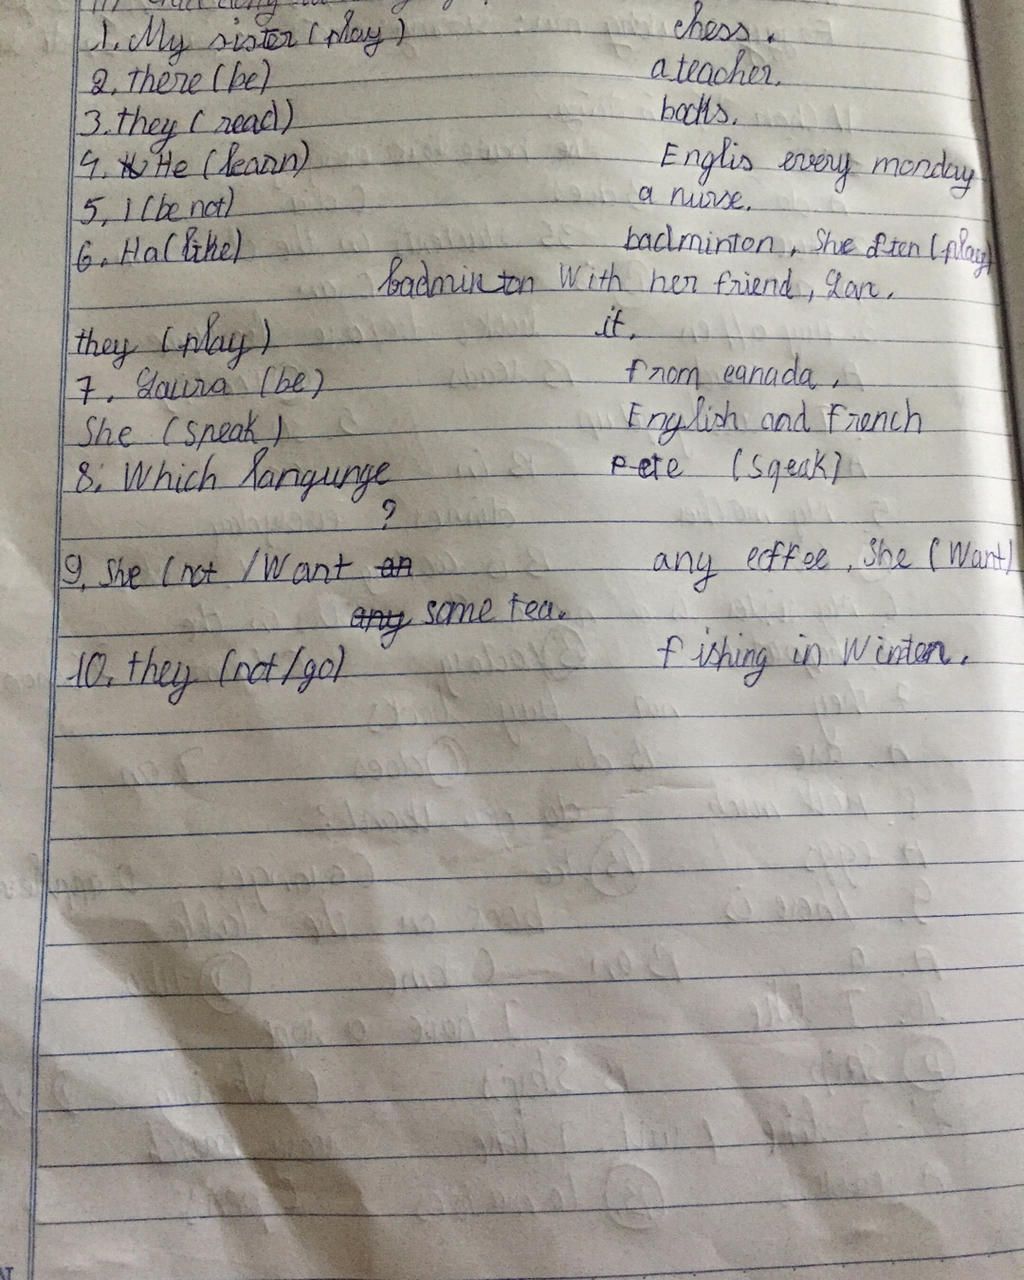 1. My sister (play) chess.
2. there (be) a teacher.
3. they (read) books.
4. He (learn) Englis every monday
5, i (be not) a nurse.
6. Ha (like) badminton, She often (play)
badminton With her friend, Lan.
they (play) it.
7. Laura (be) from canada.
She (speak) English and French
8. Which langunge Pete (sqeak)
?
9. She (not /Want any coffee, She (Want)
some tea.
10. they (not/go) fishing in Winten.